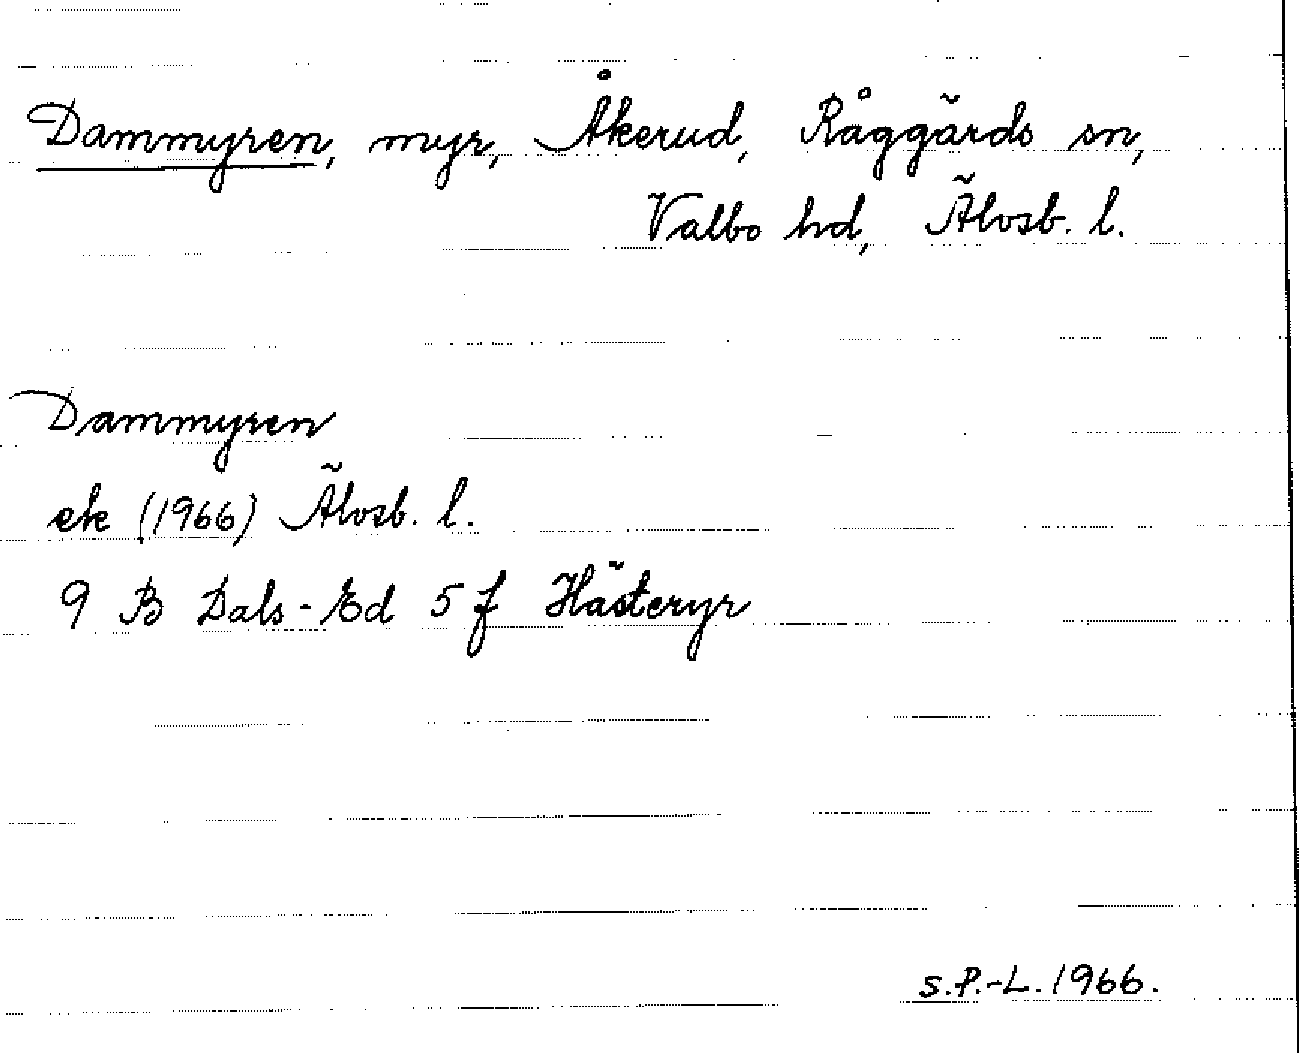 Dammyren, myr, Åkerud, Råggärds sn,
Valbo hd, Älvsb. l.
Dammyren
ek (1966) Älvsb. l.
9 B Dals-Ed 5 f Hästeryr
S.P.-L. 1966.